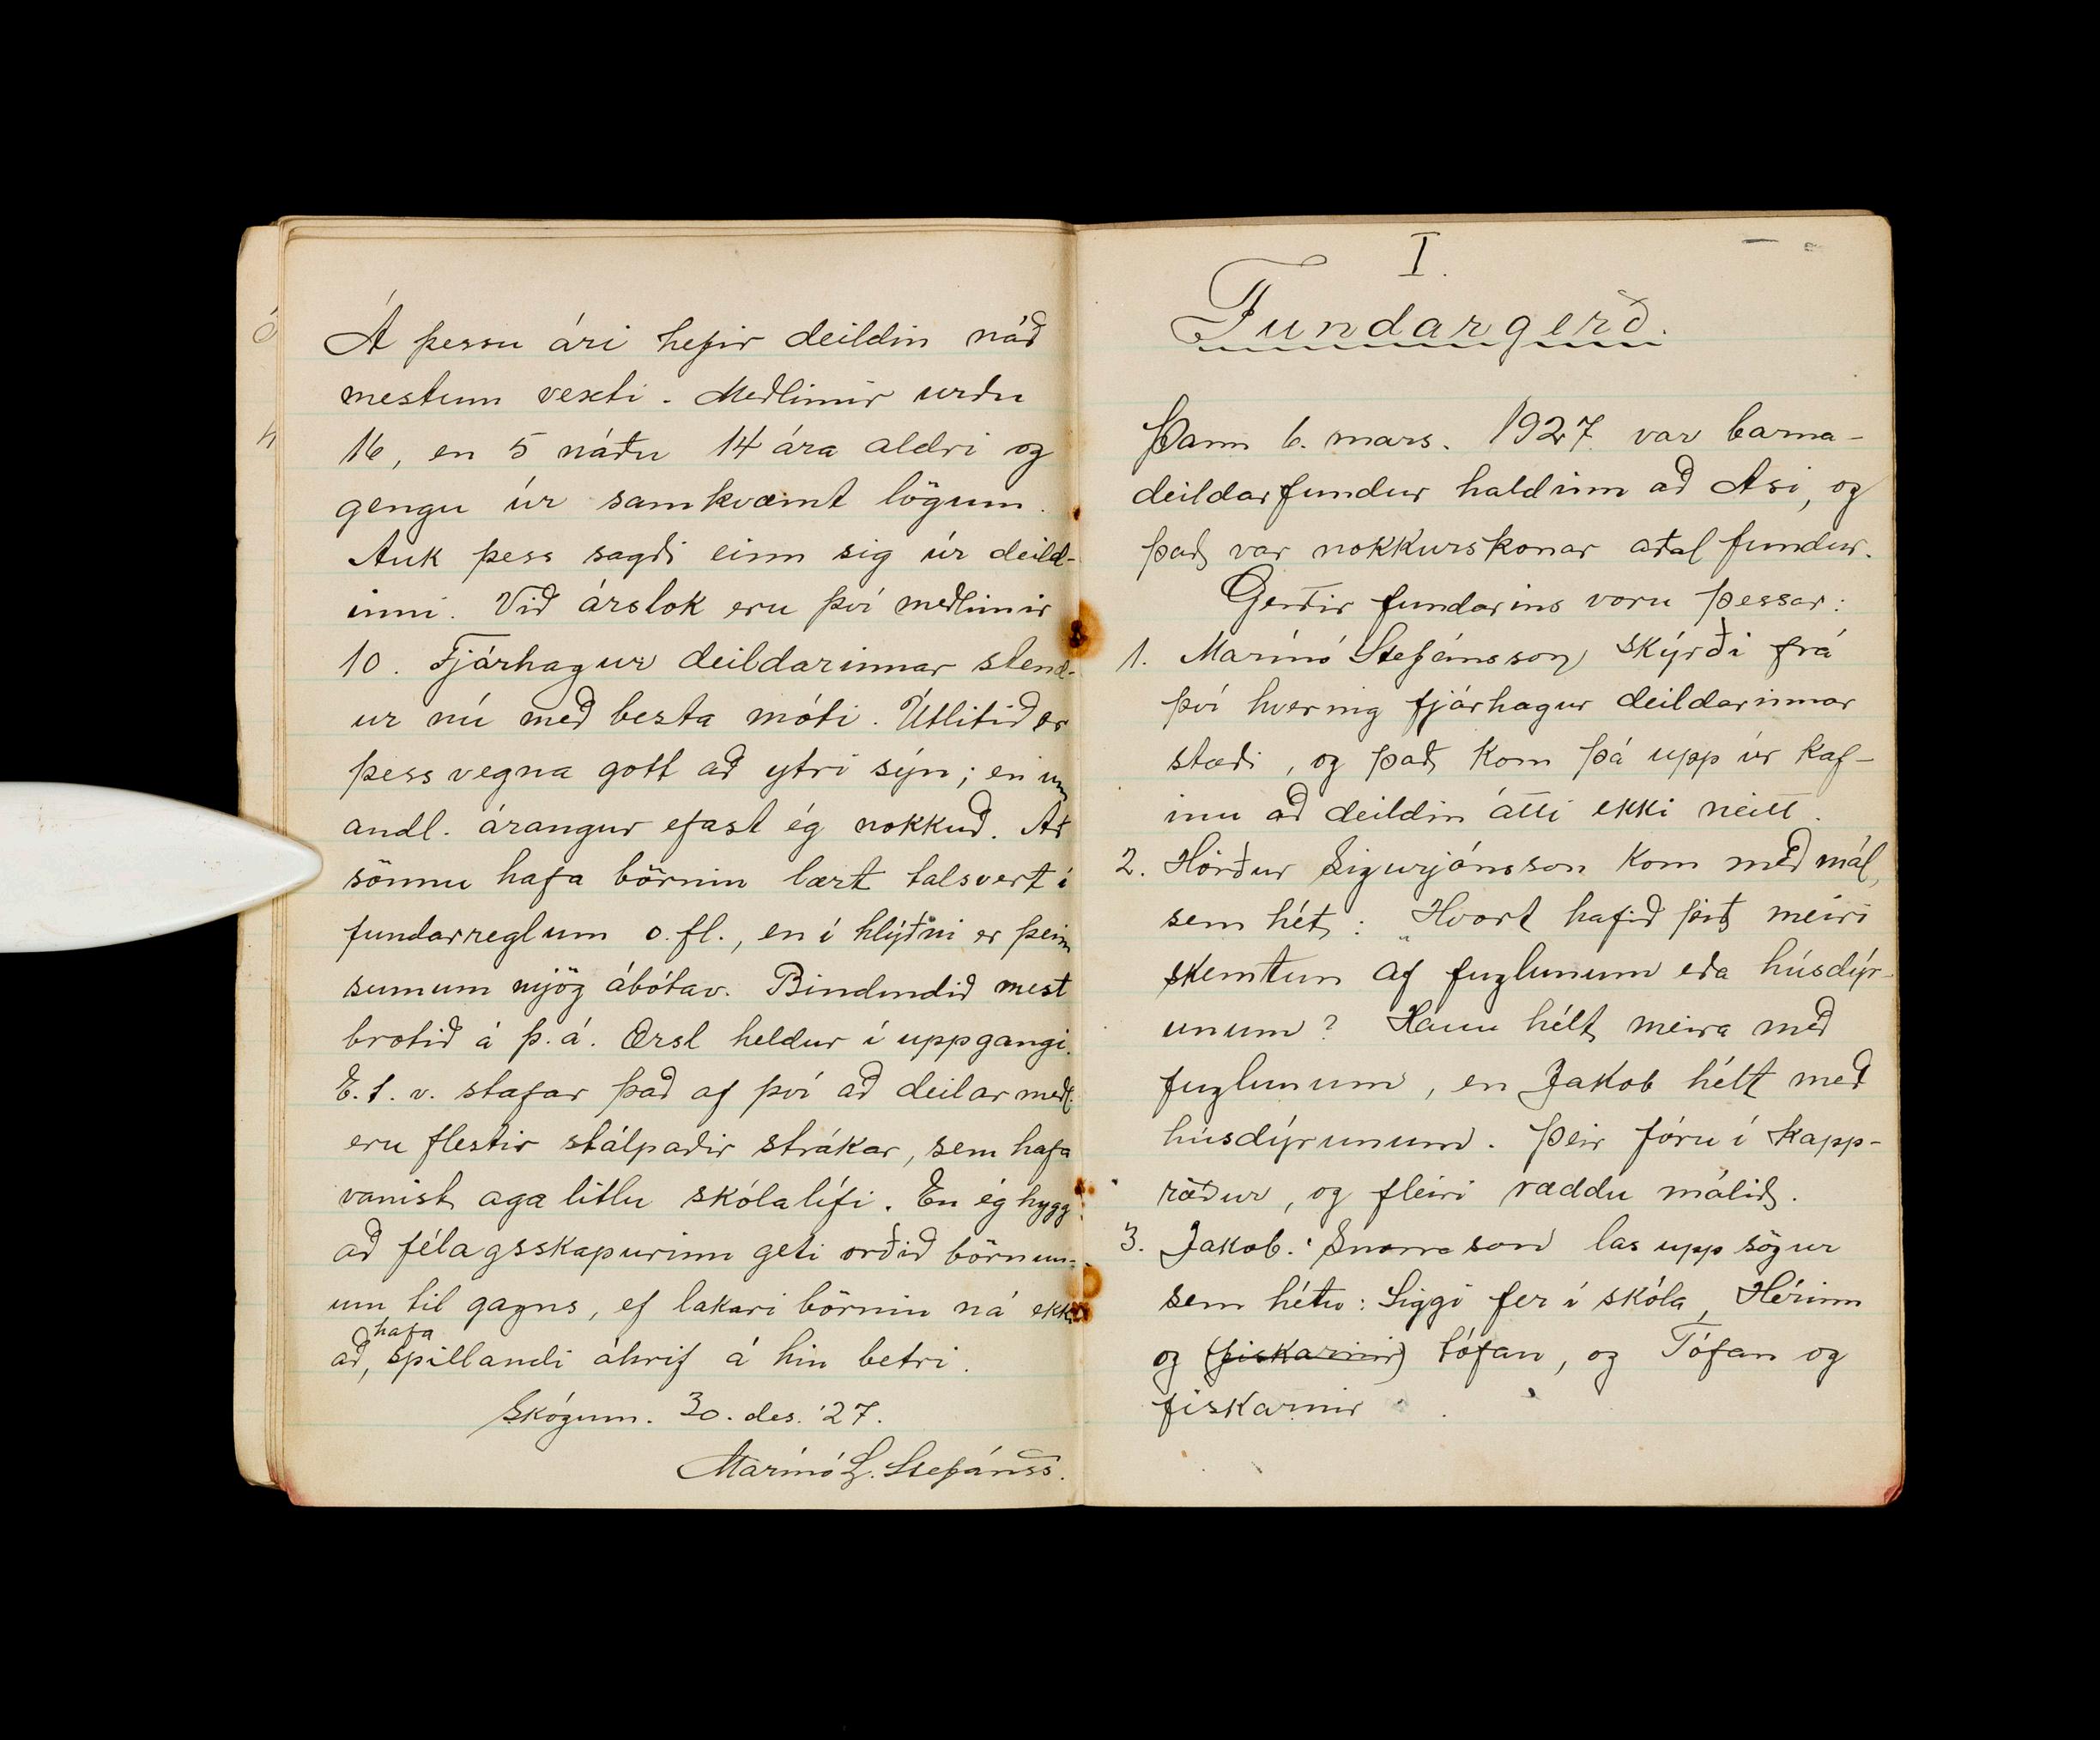 Á þessu ári hefir deildin náð
mestum vexti. Meðlimir urðu
16, en 5 náðu 14 ára aldri og
gengu úr samkvæmt lögum.
Auk þess sagði einn sig úr deild-
inni. Við árslok eru því meðlimir
10. Fjárhagur deildarinnar stend-
ur nú með besta móti. Útlitið er
þess vegna gott að ytri sýn; en um
andl. árangur efast ég nokkuð. Að
sönnu hafa börnin lært talsvert í
fundarreglum o.fl., en í hlýðni er þeim
sumum mjög ábótav. Bindindið mest
brotið á þ.á. Ærsl heldur í uppgangi.
E.t.v. stafar það af því að deilar með.
eru flestir stálpaðir strákar, sem hafa
vanist aga litlu skólalífi. En ég hygg
að félagsskapurinn geti orðið börnun-
um til gagns, ef lakari börnin ná ekki
að, hafa spillandi áhrif á hin betri.
Skógum. 30. des. '27.
Marínó L. Stefánss.
I.
Fundargerð.
Þann 6. mars. 1927 var barna-
deildarfundur haldinn að Asi, og
það var nokkurskonar aðal fundur.
Gerðir fundarins voru þessar:
1. Marínó Stefánsson skýrði frá
því hvernig fjárhagur deildarinnar
stæði, og það kom þá upp úr kaf-
inu að deildin átti ekki neitt.
2. Hörður Sigurjónsson kom með mál,
sem hét: „Hvort hafið þið meiri
skemtun af fuglunum eða húsdýr-
unum? Hann hélt meira með
fuglunum, en Jakob hélt með
húsdýrunum. Þeir fóru í kapp-
ræður, og fleiri ræddu málið.
3. Jakob. Snorrason las upp sögur
sem hétu: Siggi fer í skóla, Hérinn
og (fiskarnir) tófan, og Tófan og
fiskarnir